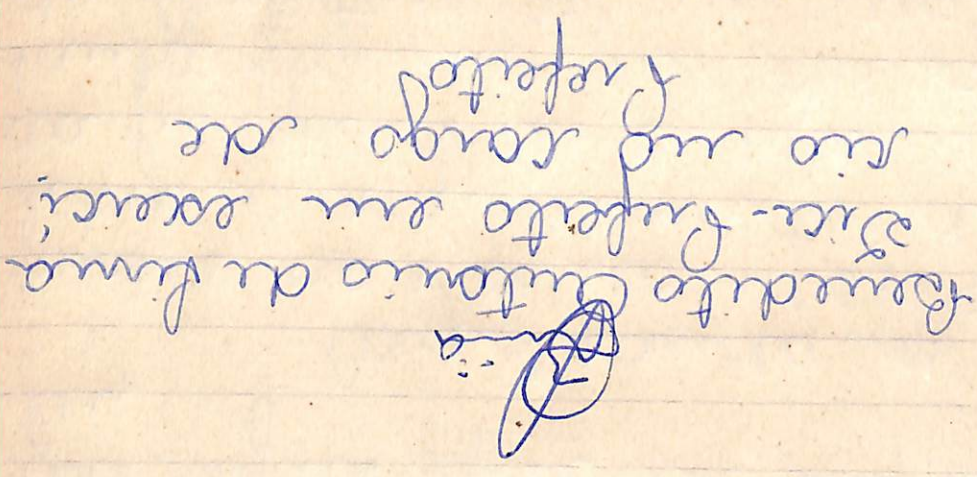 Benedito Antonio de Lima
Vice-Prefeito em exerci-
cio no cargo de
Prefeito